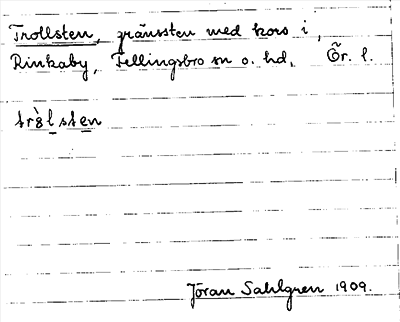 Trollsten, gränssten med kors i,
Rinkaby, Fellingsbro sn o. hd. Ör. l.
trɷ̀lsten
Jöran Sahlgren 1909.